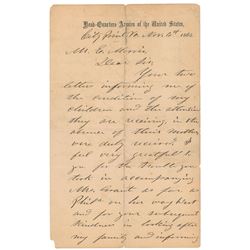 Head-Quarters Armies of the United States,
City Point Va. Nov. 4th 1864
Mr. E. Morris
Dear Sir,
Your two
letters informing me of
the condition of my
children and the attention
they are receiving, in the
absence of their Mother,
were duly received. I
feel very grateful to
you for the trouble you
took in accompanying
Mrs. Grant as far as
Phila on her way West
and for your subsequent
kindness in looking after
my family and informing